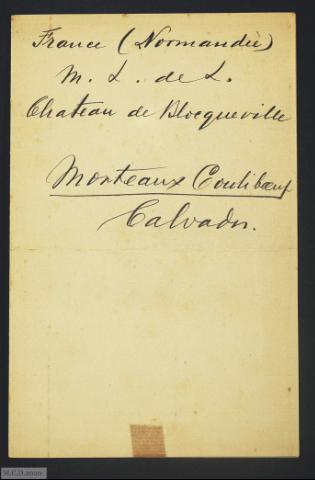 France (Normandie)
M. L. de L.
Chateau de Blocqueville
Morteaux Coulibœuf
Calvados.
M.C.D.2020